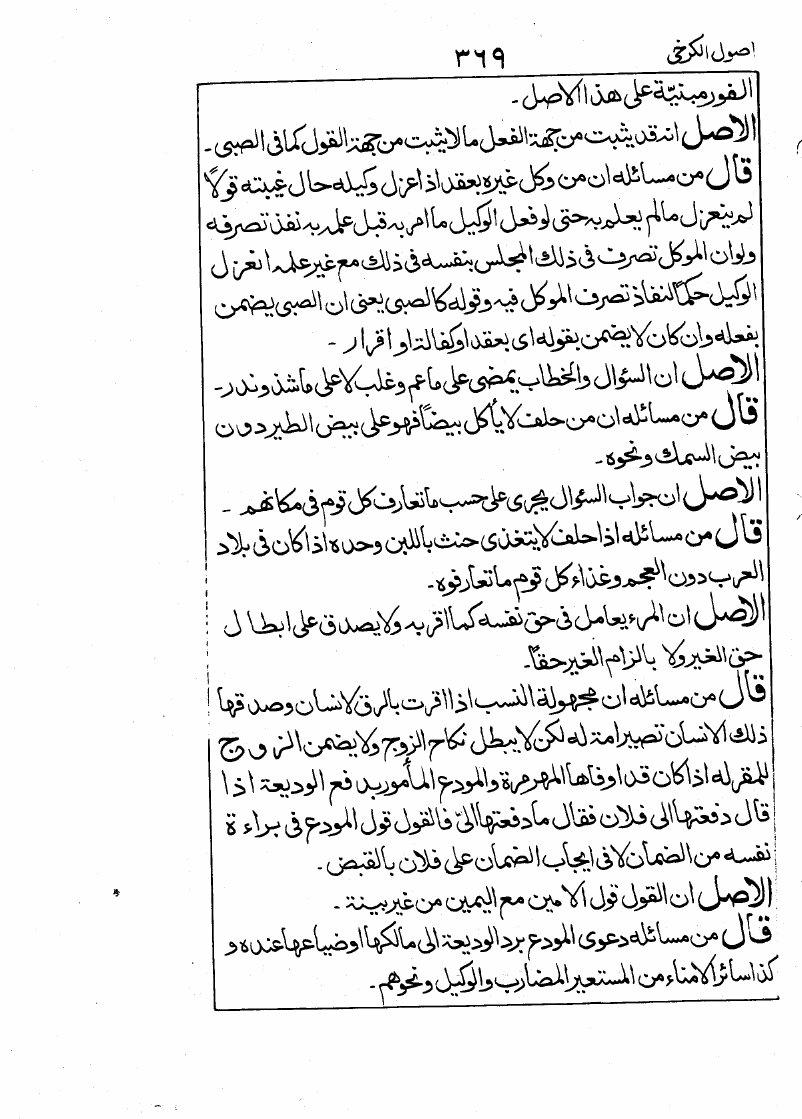 اصول الكرخي
٣٦٩
الفور مبنيّة على هذا الاصل-
الاصل انه قد يثبت من جهة الفعل ما لا يثبت من جهة القول كما فى الصبى-
قال من مسائله ان من وكل غيره بعقد اذا عزل وكيله حال غيبته قولاً
لم ينعزل مالم يعلم به حتى لو فعل الوكيل ما امر به قبل علمه به نفذ تصرفه
ولو ان الموكل تصرف فى ذلك المجلس بنفسه فى ذلك مع غير علمه انعزل
الوكيل حكماً لنفاذ تصرف الموكل فيه وقوله كالصبى يعنى ان الصبى يضمن
بفعله وان كان لا يضمن بقوله اى بعقد او كفالة او اقرار-
الاصل ان السؤال والخطاب يمضى على ما عم وغلب لا على ما شذ وندر-
قال من مسائله ان من حلف لا يأكل بيضاً فهو على بيض الطير دون
بيض السمك ونحوه-
الاصل ان جواب السؤال يجرى على حسب ما تعارف كل قوم فى مكانهم-
قال من مسائله اذا حلف لا يتغذى حنث باللبن وحده اذا كان فى بلاد
العرب دون العجم وغذاء كل قوم ما تعارفوه-
الاصل ان المرء يعامل فى حق نفسه كما اقر به ولا يصدق على ابطال
حق الغير ولا بالزام الغير حقاً-
قال من مسائله ان مجهولة النسب اذا اقرت بالرق لانسان وصدقها
ذلك الانسان تصير امة له لكن لا يبطل نكاح الزوج ولا يضمن الزوج
للمقر له اذا كان قد اوفاها المهر مرة والمودع المأمور بدفع الوديعة اذا
قال دفعتها الى فلان فقال ما دفعتها الىّ فالقول قول المودع فى براءة
نفسه من الضمان لا فى ايجاب الضمان على فلان بالقبض-
الاصل ان القول قول الامين مع اليمين من غير بينة-
قال من مسائله دعوى المودع برد الوديعة الى مالكها او ضياعها عنده و
كذا سائر الامناء من المستعير المضارب والوكيل ونحوهم-